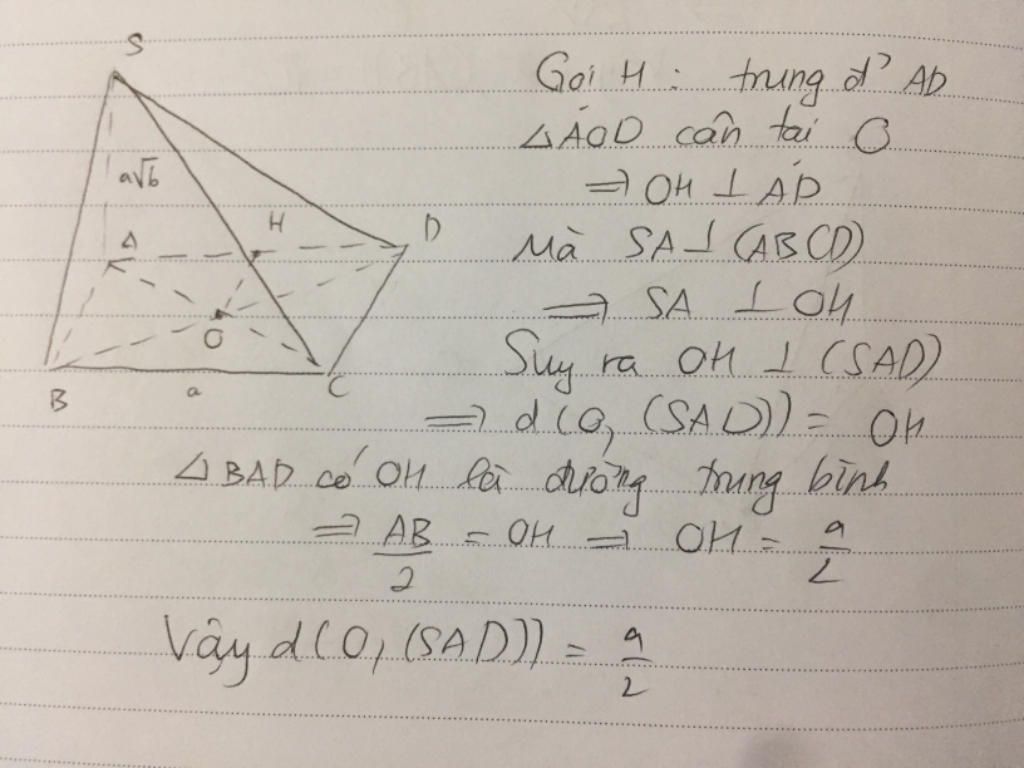 S
a√6
A
H
D
O
B
a
C
Gọi H : trung đ' AD
△AOD cân tại O
⇒ OH ⊥ AD
Mà SA ⊥ (ABCD)
⇒ SA ⊥ OH
Suy ra OH ⊥ (SAD)
⇒ d(O, (SAD)) = OH
△BAD có OH là đường trung bình
⇒ AB/2 = OH ⇒ OH = a/2
Vậy d(O, (SAD)) = a/2